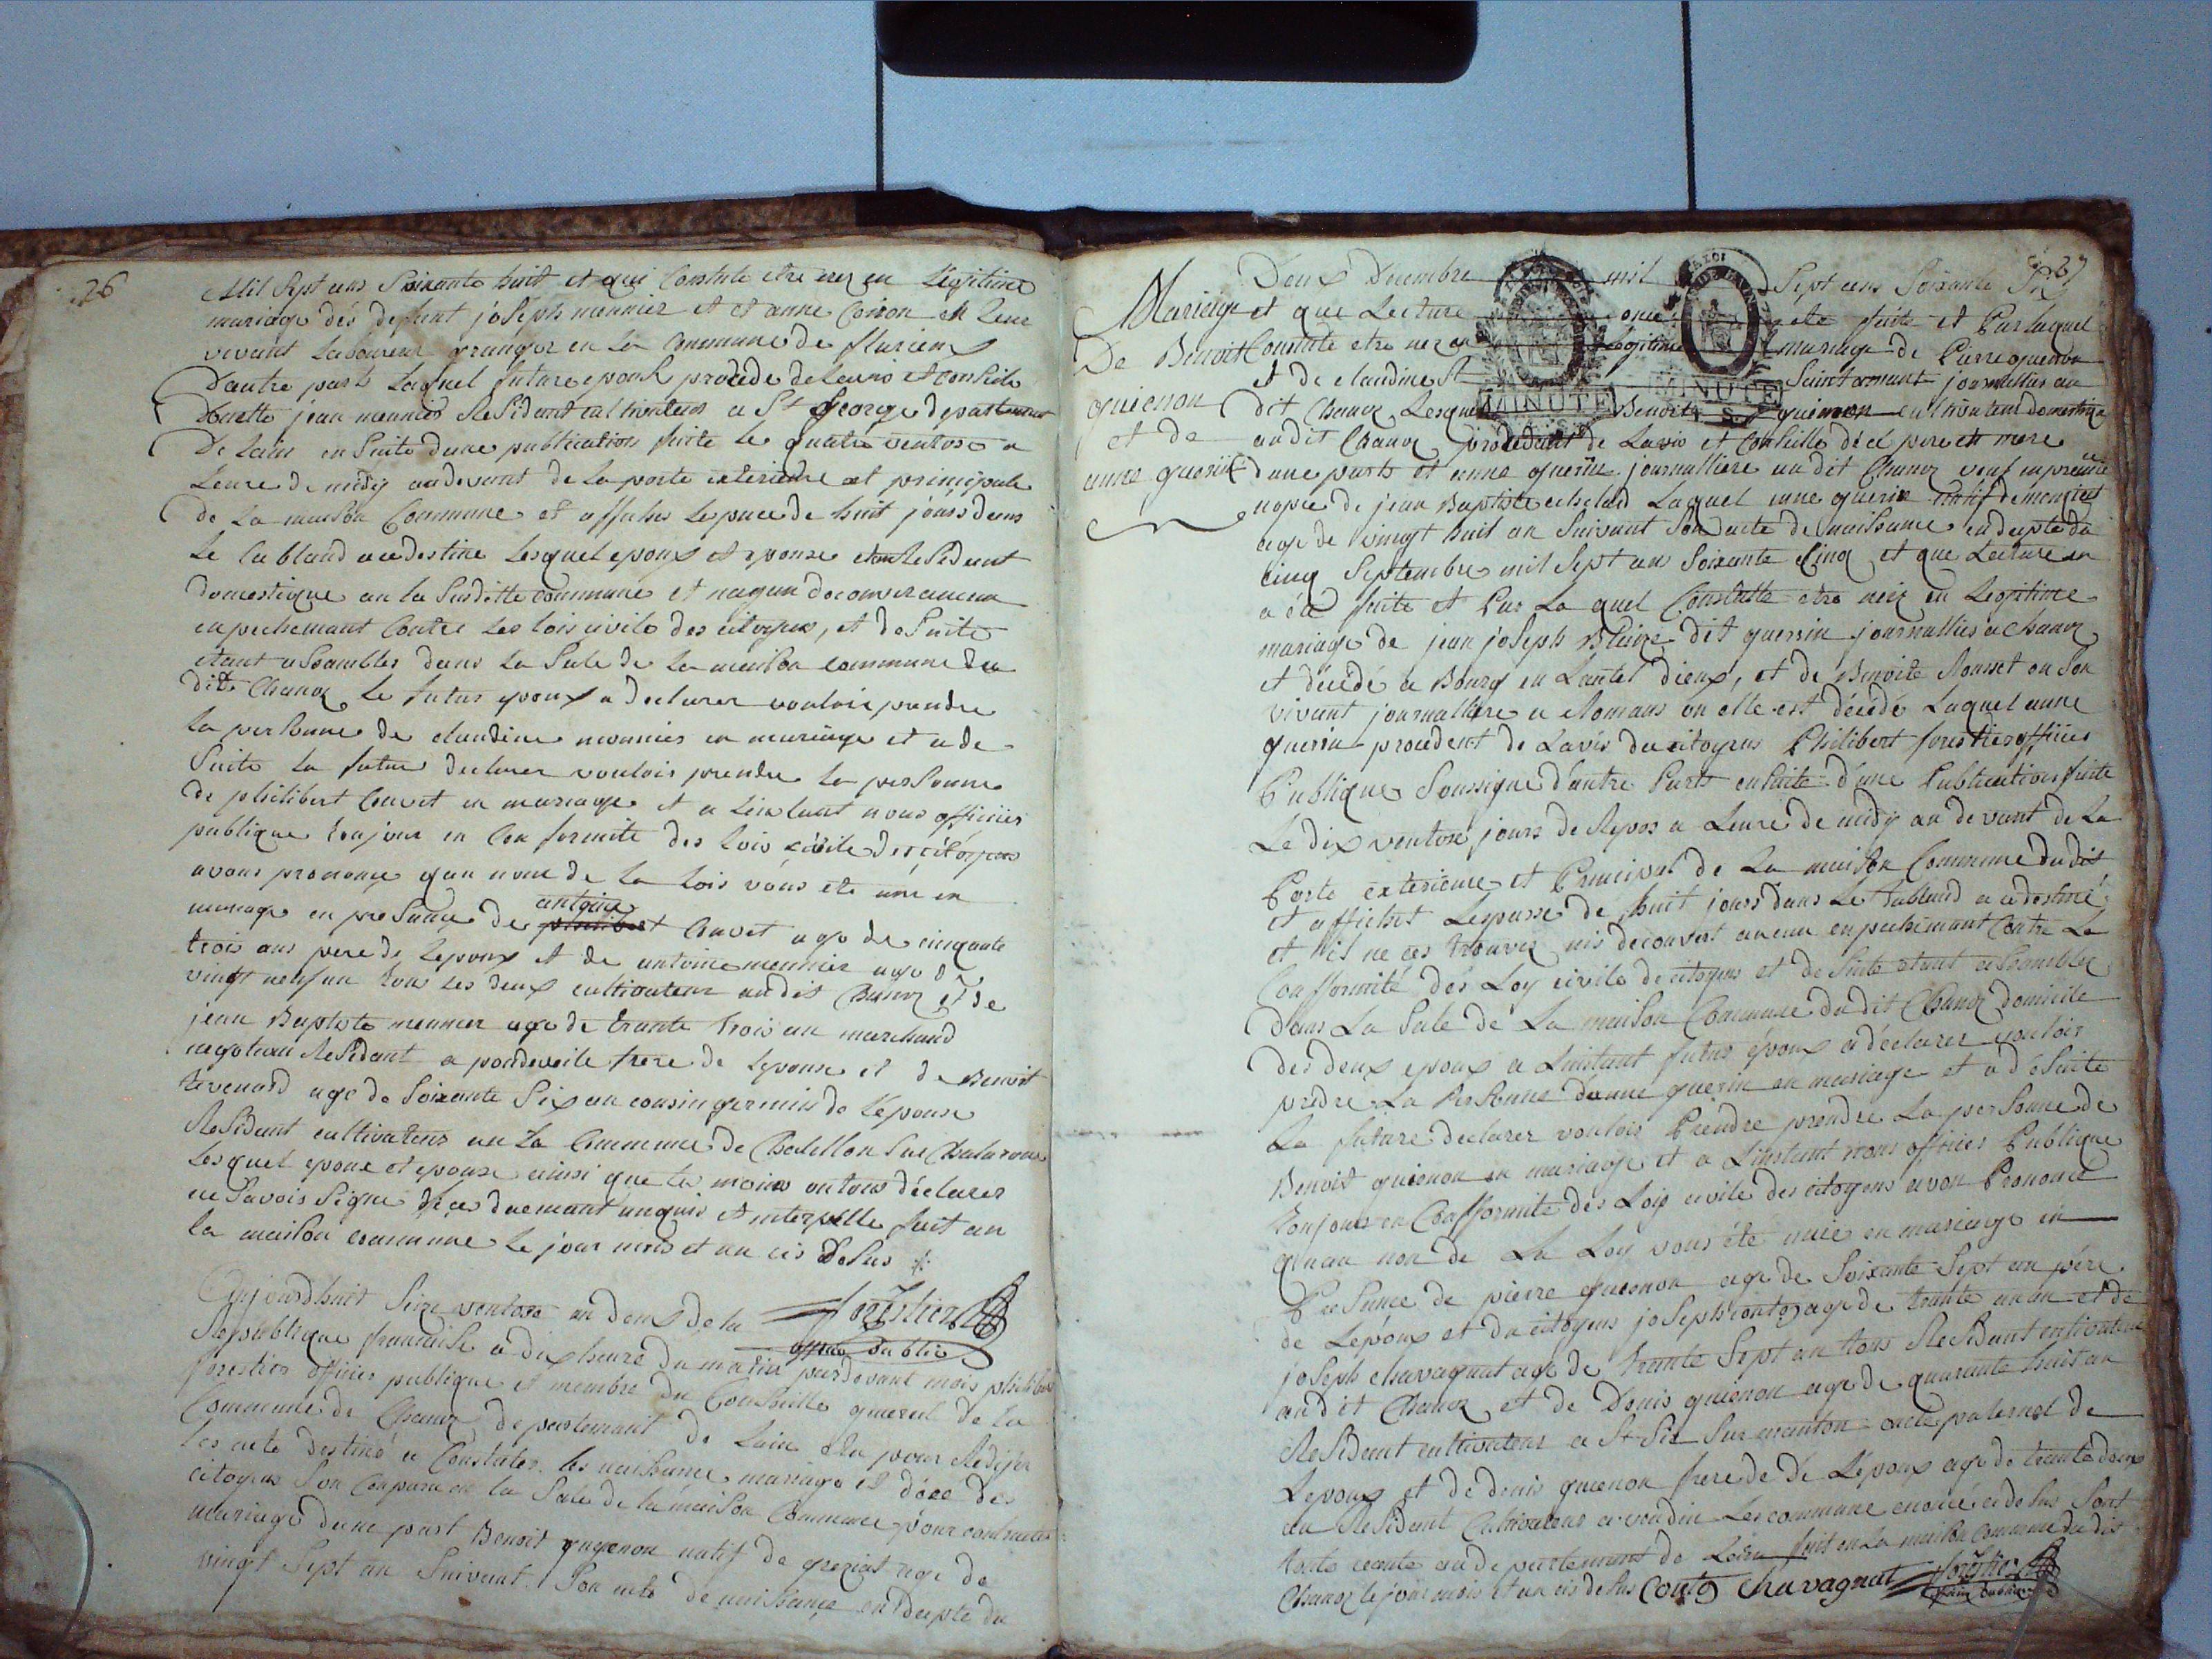 26
Mil Sept cens Soixante huit et qui Constate etre nez en Légitime
mariage dés defunt joséph monnier et et anne Corron en Leur
vivant Laboureur granger en La Commune de flurieux
D'autre part Laquel future epouse procede de Lavis et conseil
jean monnier Residant cultivateur a St George departement
De Lain en Suite dune publication faite Le quatre ventose a
Leure de midy audevant de La porte exterieure et principale
de La maison Commune et affiches Lespace de huit jours dans
Le tabland a ce destine Lesquel epoux et epouse Residant
domestique en la Susditte commune et nayan decouver aucun
enpechemant Contre Les lois civile des citoyens, et de Suite
etant assambler dans La Sale de La maison commune du
dit Chanoz Le futur epoux a declarer vouloir prendre
La personne de claudine monnier en mariage et a de
Suite La future declarer vouloir prendre La personne
de philibert Cauvet en mariage et a Linstant nous officier
publique toujour en Conformite des lois civile des citoyens
avons prononce quau nom de La Lois vous ete unie en
antoine
mariage en presance de philibert Cauvet age de cinquante
trois ans pere de Lepoux et de antoine monnier age de
vingt neuf an tous Les deux cultivateur audit Chanoz et de
jean Baptiste monnier age de trante trois an marchand
negotian Residant a pondeveile frere de Lepouse et de Benoit
tevenard age de Soixante Six an cousin germin de Lépouse
Residant cultivateur en La Commune de Chatillon Sur Chalarone
Lesquel epoux et epouse ainsi que te moins on tous déclarer
ne Savoir Signe de ce duemant enquis et interpelle fait en
la maison commune Le jour mois et an cis deSus
Aujourdhuit Seize ventose an deux de la forêstier
Republique francaise a dix heure du matin pardevant mois philibert
officier public
forestier officier publique et membre du Conseille general de la
Commune de Chanoz departemant de Lain elu pour Redijer
les acte destiné a Constater les naissance mariage et décé des
citoyens Son Comparu en la Sale de la maison Commune pour contracter
mariage dune part Benoit guyenon natif de greziat age de
vingt Sept an Suivant Son acte de naissance en datte du
27
Deux Decembre mil Sept cens Soixante Six
Mariage
De Benoit
guienon
et de
anne guerin
et que Lecture onna ete faite et Par laquel
Constate etre nez en Légitime mariage de Pierre guenon
et de claudine Saint amant journallier au
dit Chanoz Lesquel Benoit guienon cultivateur domestique
MINUTE
MINUTE
audit Chanoz procedant de Lavis et Conseille de cel pere et mere
dune parts et anne guerin journalliere au dit Chanoz veuf en premiere
nopce de jean Baptiste Laquel anne guerin natif de meziriat
age de vingt huit an Suivant Son acte de naissance en dapte du
cinq Septembre mil Sept cens Soixante Cinq et que Lecture en
a été faite et Par La quel Constatte etre neiz en Legitime
mariage de jean joseph Blaize dit guerin journallier a Chanoz
et décédé a Bourg en Lautel dieux, et de Benoite Rousset en Son
vivant journallere a Romans on elle est décédé Laquel anne
guerin procedent de Lavis du citoyens Philibert forestier officier
Publique Soussigne d'autre Parts ensuite d'une Publication faite
Le dix ventose, jours de Repos a Leure de midy au devant de La
Porte exterieure et Principal de La maison Commune dudit
et affichet Lespasse de huit jours dans Le tabland a ce destiné
et il ne ces trouvez nis decouvert aucun enpechemant Contre La
Confformité dés Loy civile de citoyens et de Suite etant assembler
dans La Sale de La maison Commune du dit Chanoz domicile
des deux epoux a Linstant futur époux a déclarer vouloir
prédre La Personne danne guerin en mariage et a dé Suite
La future declarer vouloir Prendre prendre La personne de
Benoit guienon en mariage et a Linstant nous officier Publique
toujour en Confformité des Lois civile des citoyens avon Prononcé
quau non de La Loy vous été unie en mariage en
Presance de pierre guenon age de Soixante Sept an pére
de Lepoux et du citoyens joseph conte age de trante un an et de
joseph chavagnat age de trante Sept an tous Residant cultivateur
audit Chanoz et de Denis guienon age de quarante huit an
Residant cultivateur a St Sir Sur manton oncle paternel de
Lepoux et de denis guienon frere de dé Lépoux age de trante deux
an Residant Cultivateur a vandin Les commune enoncé ci deSus Sont
toute au departemant de Lain fait en La maison Commune dudit
Chanoz le jour mois et an cis deSus Conte Chavagnat forêstier
officier public